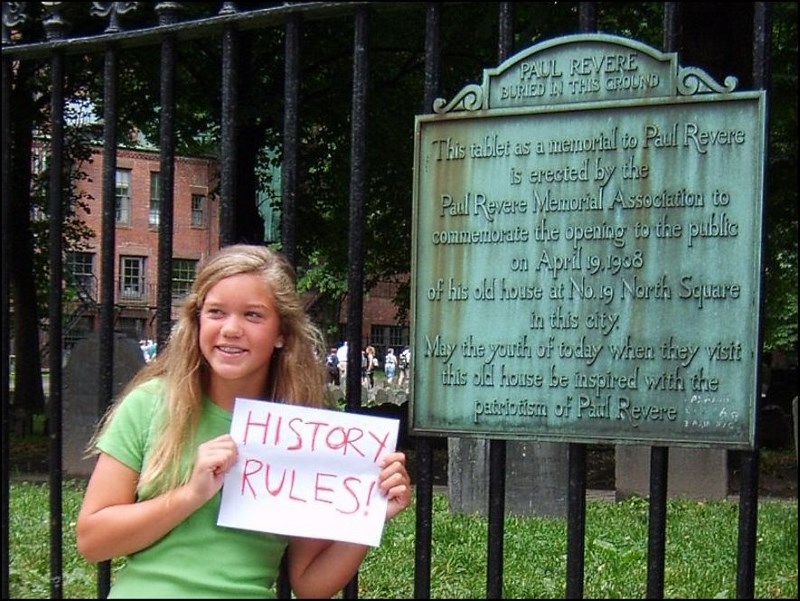 PAUL REVERE
BURIED IN THIS GROUND
This tablet as a memorial to Paul Revere
is erected by the
Paul Revere Memorial Association to
commemorate the opening to the public
on April 19, 1908
of his old house at No. 19 North Square
in this city.
May the youth of today when they visit
this old house be inspired with the
patriotism of Paul Revere
HISTORY
RULES!